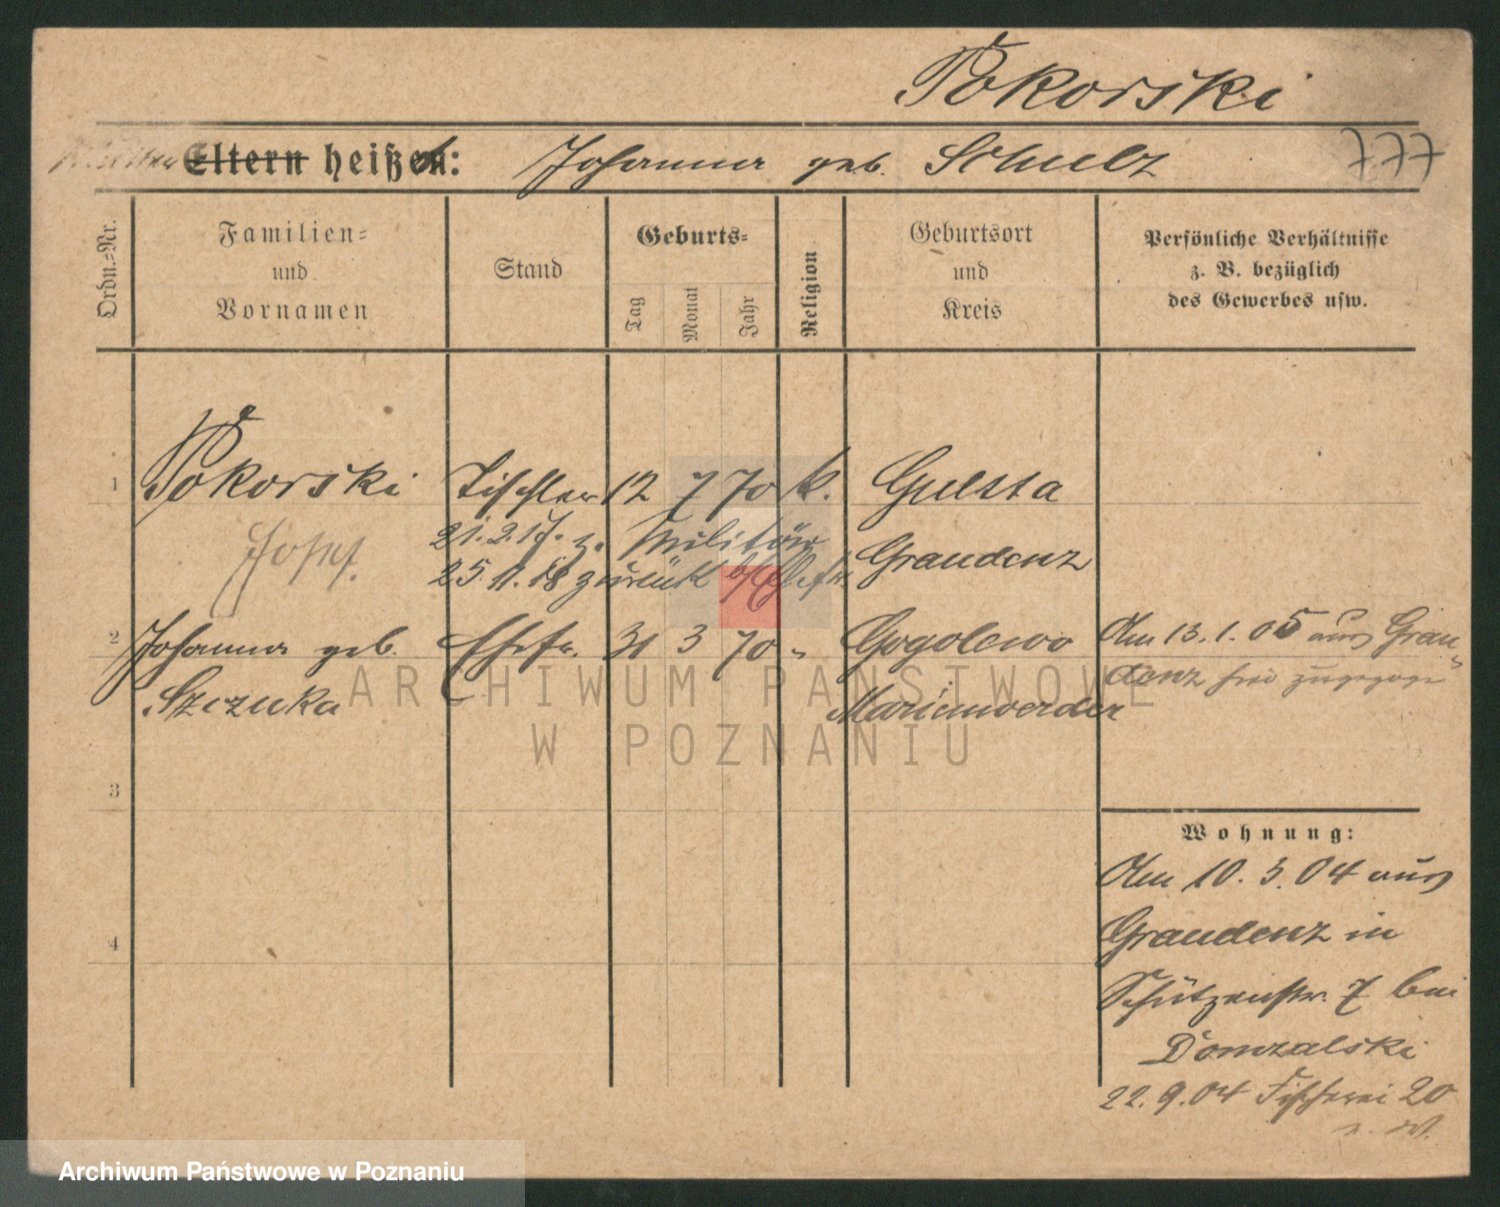 Pokorski
Eltern heißen: Johanna geb. Schulz 777
Ordn.-Nr.
Familien-
und
Vornamen
Stand
Geburts-
Tag
Monat
Jahr
Religion
Geburtsort
und
Kreis
Persönliche Verhältnisse
z. B. bezüglich
des Gewerbes usw.
1 Pokorski Tischler 12 7 70 k. Gulssa
Josef. 21.2.17. z. Militär Graudenz
25.11.18 zurück
2 Johanna geb. Ehefr. 31 3 70 " Gogolewo Am 13.1.05 aus Grau-
Szczuka Marienwerder denz
3
4
Wohnung:
Am 10.3.04 aus
Graudenz in
Schützenstr. 7 bei
Domzalski
22.9.04 Fischerei 20
ARCHIWUM PAŃSTWOWE
W POZNANIU
Archiwum Państwowe w Poznaniu